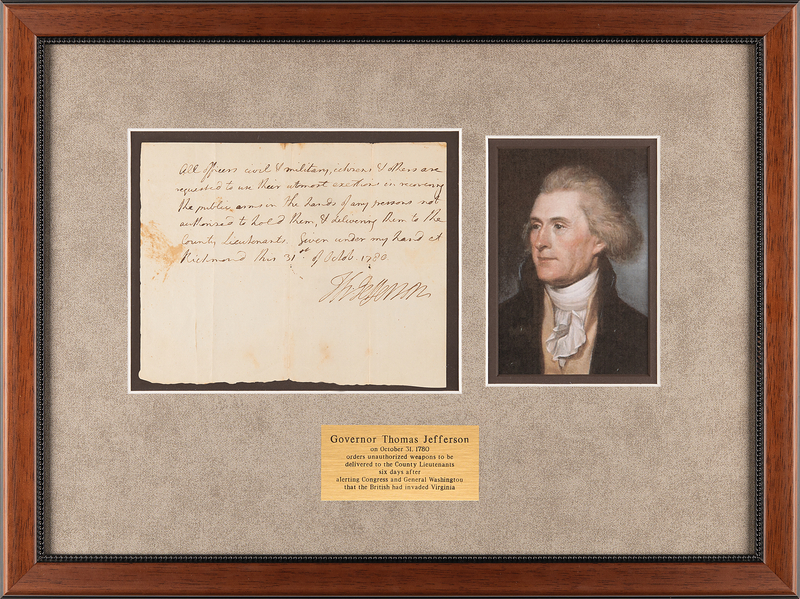 All officers civil & military, citizens & others are
requested to use their utmost exertions in recovering
the public arms in the hands of any persons not
authorised to hold them, & delivering them to the
County Lieutenants. Given under my hand at
Richmond this 31st of Octob. 1780.
Th: Jefferson
Governor Thomas Jefferson
on October 31, 1780
orders unauthorized weapons to be
delivered to the County Lieutenants
six days after
alerting Congress and General Washington
that the British had invaded Virginia